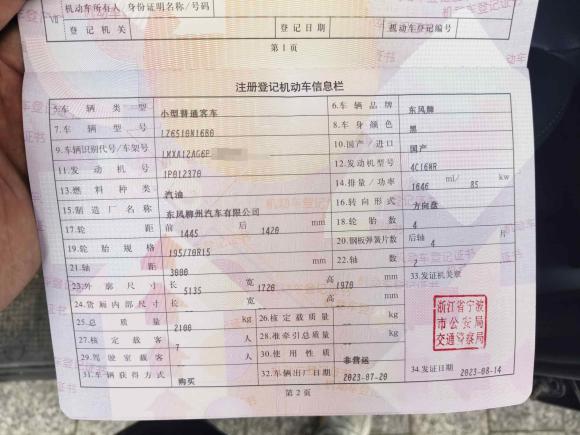 机动车所有人 身份证明名称/号码
Ⅶ
登记机关 登记日期 机动车登记编号
第1页
注册登记机动车信息栏
5.车辆类型 小型普通客车 6.车辆品牌 东风牌
7.车辆型号 LZ6510N16B0 8.车身颜色 黑
9.车辆识别代号/车架号 LMXA12AG6P 10.国产/进口 国产
11.发动机号 1P012370 12.发动机型号 4C16NR
13.燃料种类 汽油 14.排量/功率 1646 ml/ 85 kw
15.制造厂名称 东风柳州汽车有限公司 16.转向形式 方向盘
17.轮距 前 1445 后 1420 mm 18.轮胎数 4
19.轮胎规格 195/70R15 20.钢板弹簧片数 后轴 4 片
21.轴距 3000 mm 22.轴数 2
23.外廓尺寸 长 5135 宽 1720 高 1970 mm 33.发证机关章
24.货厢内部尺寸 长 宽 高 mm
25.总质量 2100 kg 26.核定载质量 kg
27.核定载客 7 人 28.准牵引总质量 kg
29.驾驶室载客 人 30.使用性质 非营运
31.车辆获得方式 购买 32.车辆出厂日期 2023-07-20 34.发证日期 2023-08-14
浙江省宁波
市公安局
交通警察局
第2页